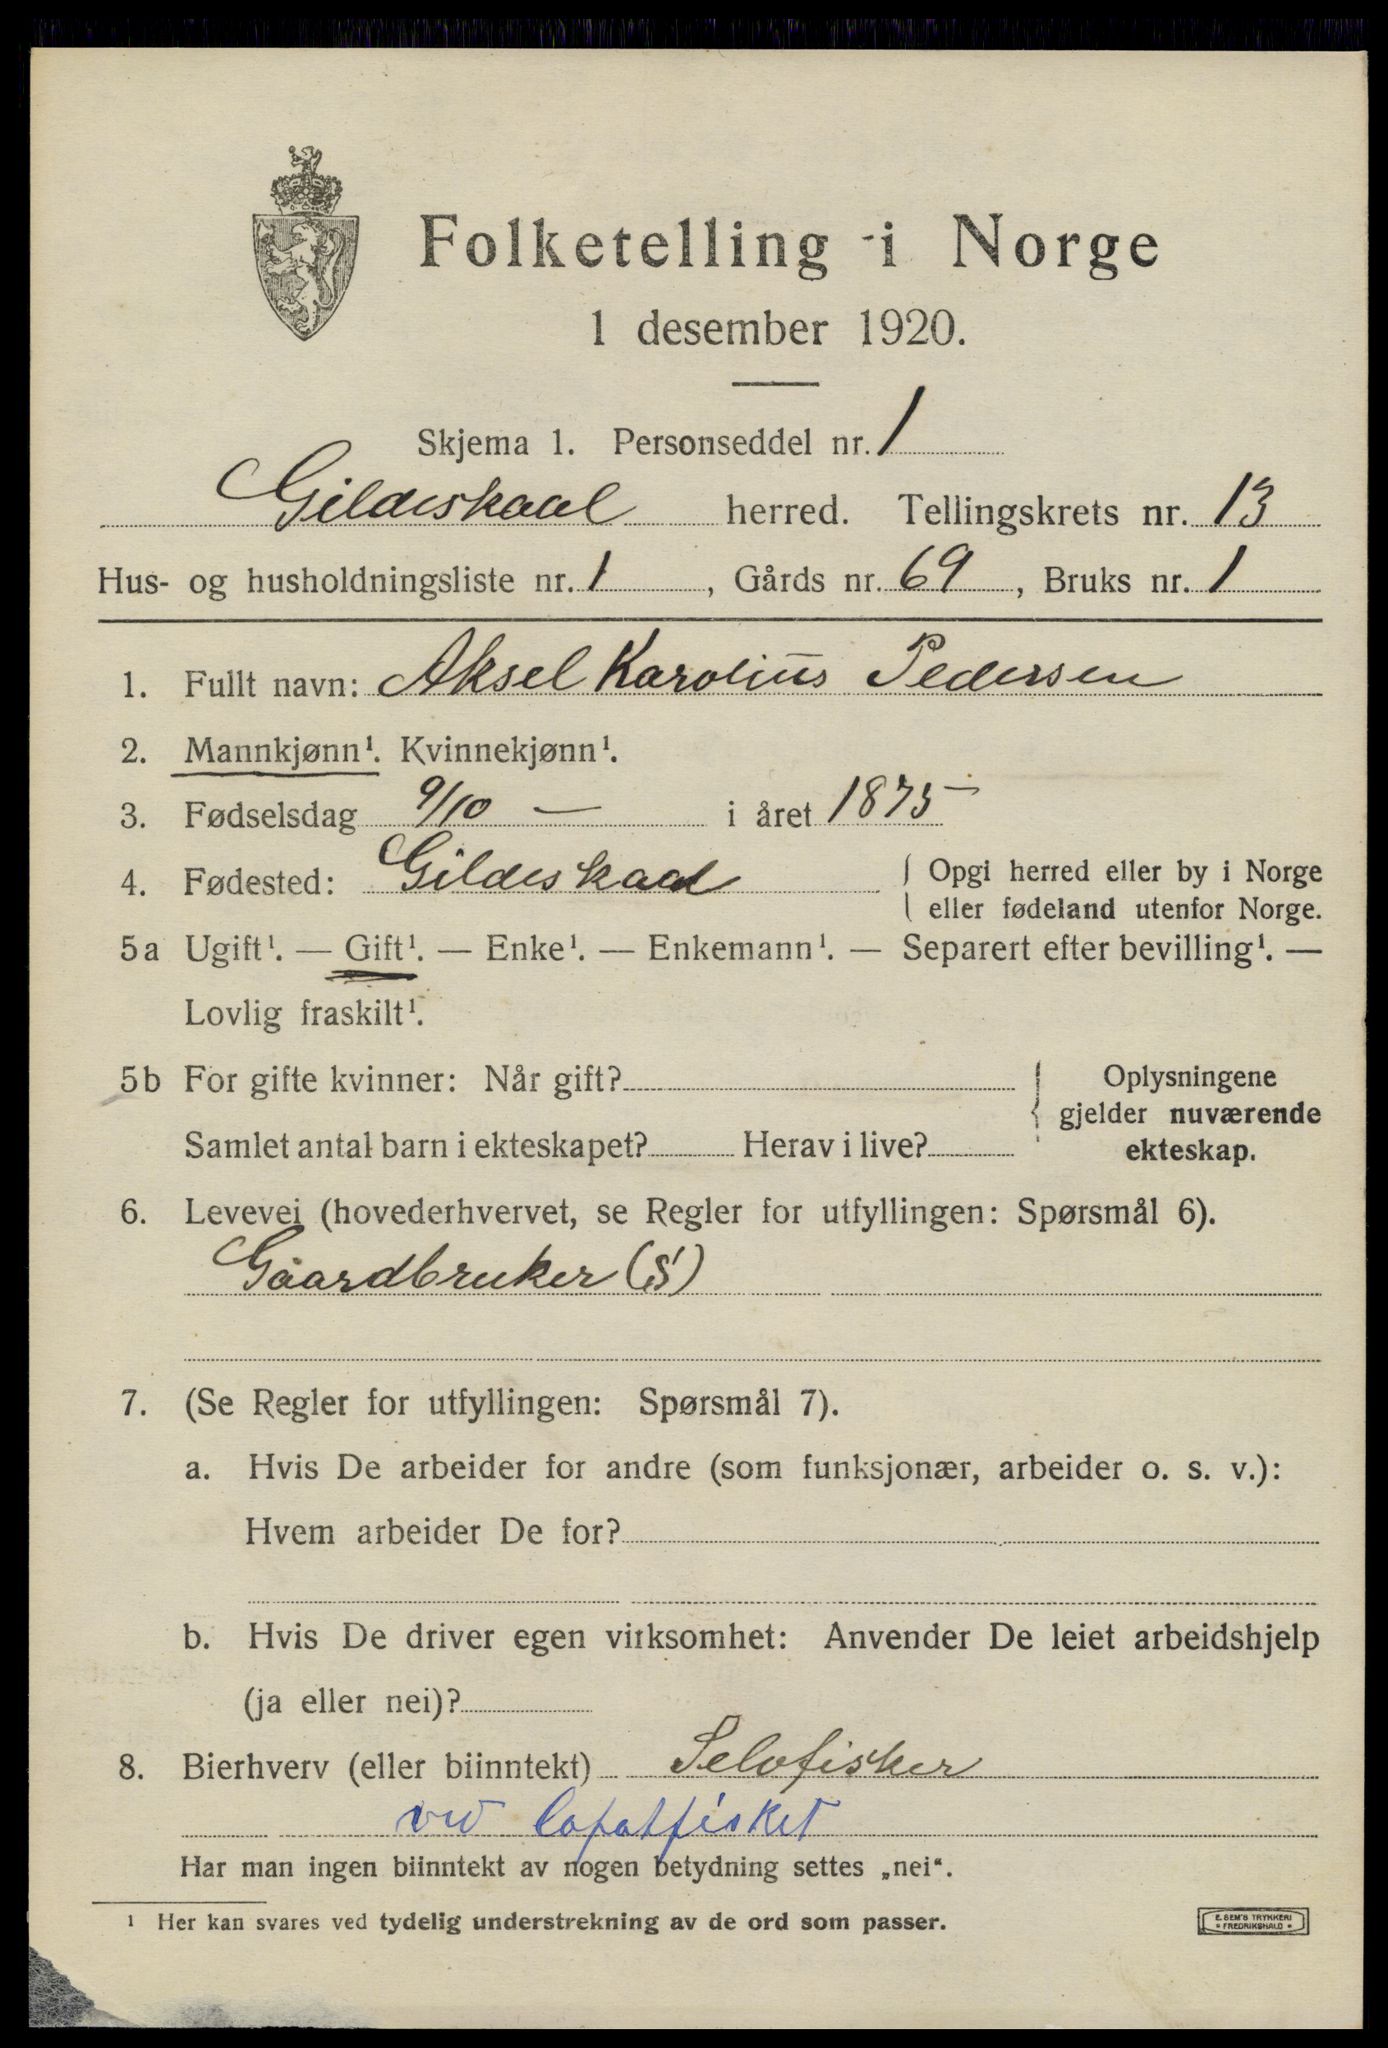 Folketelling i Norge
1 desember 1920.
Skjema 1. Personseddel nr. 1
Gildeskaal herred. Tellingskrets nr. 13
Hus- og husholdningsliste nr. 1, Gårds nr. 69, Bruks nr. 1
1. Fullt navn: Aksel Karolius Pedersen
2. Mannkjønn¹. Kvinnekjønn¹.
3. Fødselsdag 9/10 — i året 1875
4. Fødested: Gildeskaal { Opgi herred eller by i Norge
eller fødeland utenfor Norge.
5a Ugift¹. — Gift¹. — Enke¹. — Enkemann¹. — Separert efter bevilling¹. —
Lovlig fraskilt¹.
5b For gifte kvinner: Når gift? { Oplysningene
gjelder nuværende
Samlet antal barn i ekteskapet? Herav i live? ekteskap.
6. Levevei (hovederhvervet, se Regler for utfyllingen: Spørsmål 6).
Gaardbruker (S)
7. (Se Regler for utfyllingen: Spørsmål 7).
a. Hvis De arbeider for andre (som funksjonær, arbeider o. s. v.):
Hvem arbeider De for?
b. Hvis De driver egen virksomhet: Anvender De leiet arbeidshjelp
(ja eller nei)?
8. Bierhverv (eller biinntekt) Selvfisker
ved Lofotfisket
Har man ingen biinntekt av nogen betydning settes „nei“.
¹ Her kan svares ved tydelig understrekning av de ord som passer.
E. SEM'S TRYKKERI
* FREDRIKSHALD *